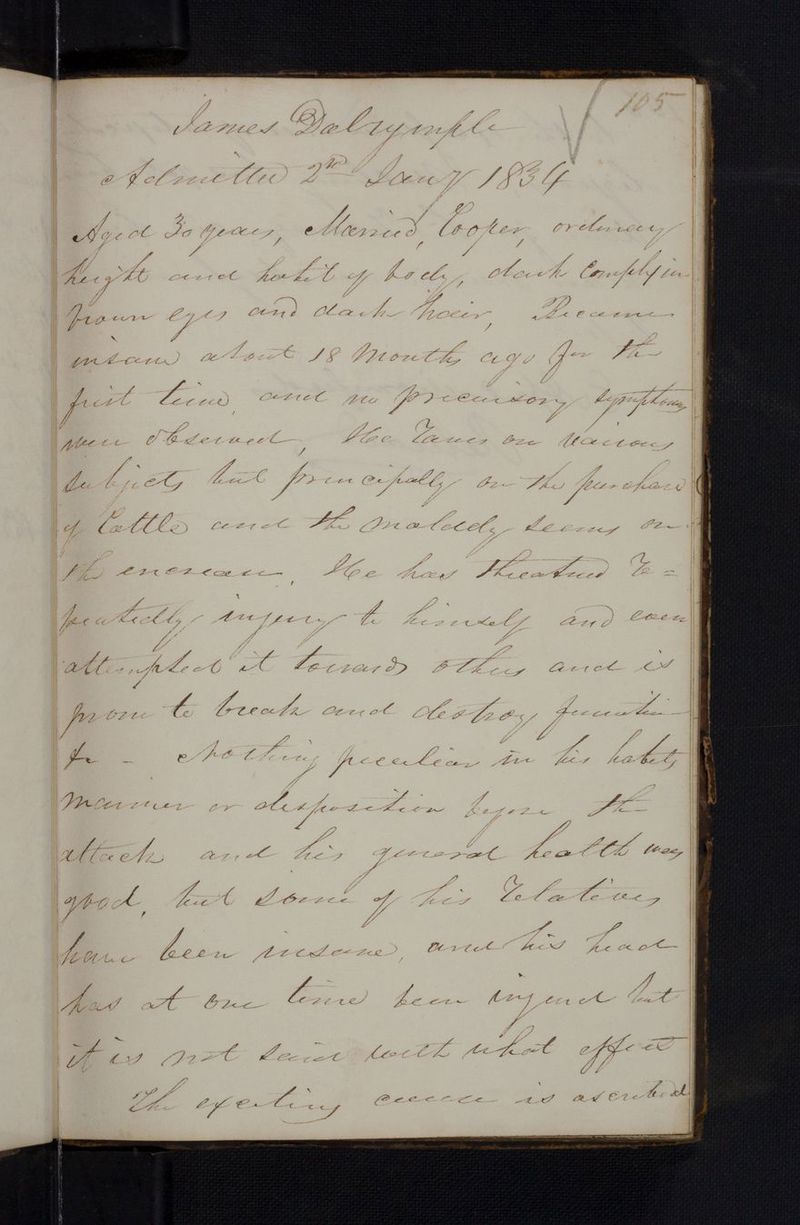 105
James Dalrymple
Admitted 2nd Jany 1834
Aged 30 years, Married, Cooper, ordinary
height and habit of body, dark Complexion
brown eyes and dark hair, Became
insane about 18 Months ago for the
first time, and no precursory symptoms
were observed, He Raves on various
subjects but principally on the purchase
of Cattle and the malady seems on
the encrease. He has threatned Re=
peatedly injury to himself and even
attempted it towards others and is
prone to break and destroy furniture
&c - Nothing peculiar in his habits
manner or disposition before the
attack and his general health was
good, but some of his Relatives
have been insane, and his head
has at one time been injured but
it is not said with what effect
The exciting cause is ascribed